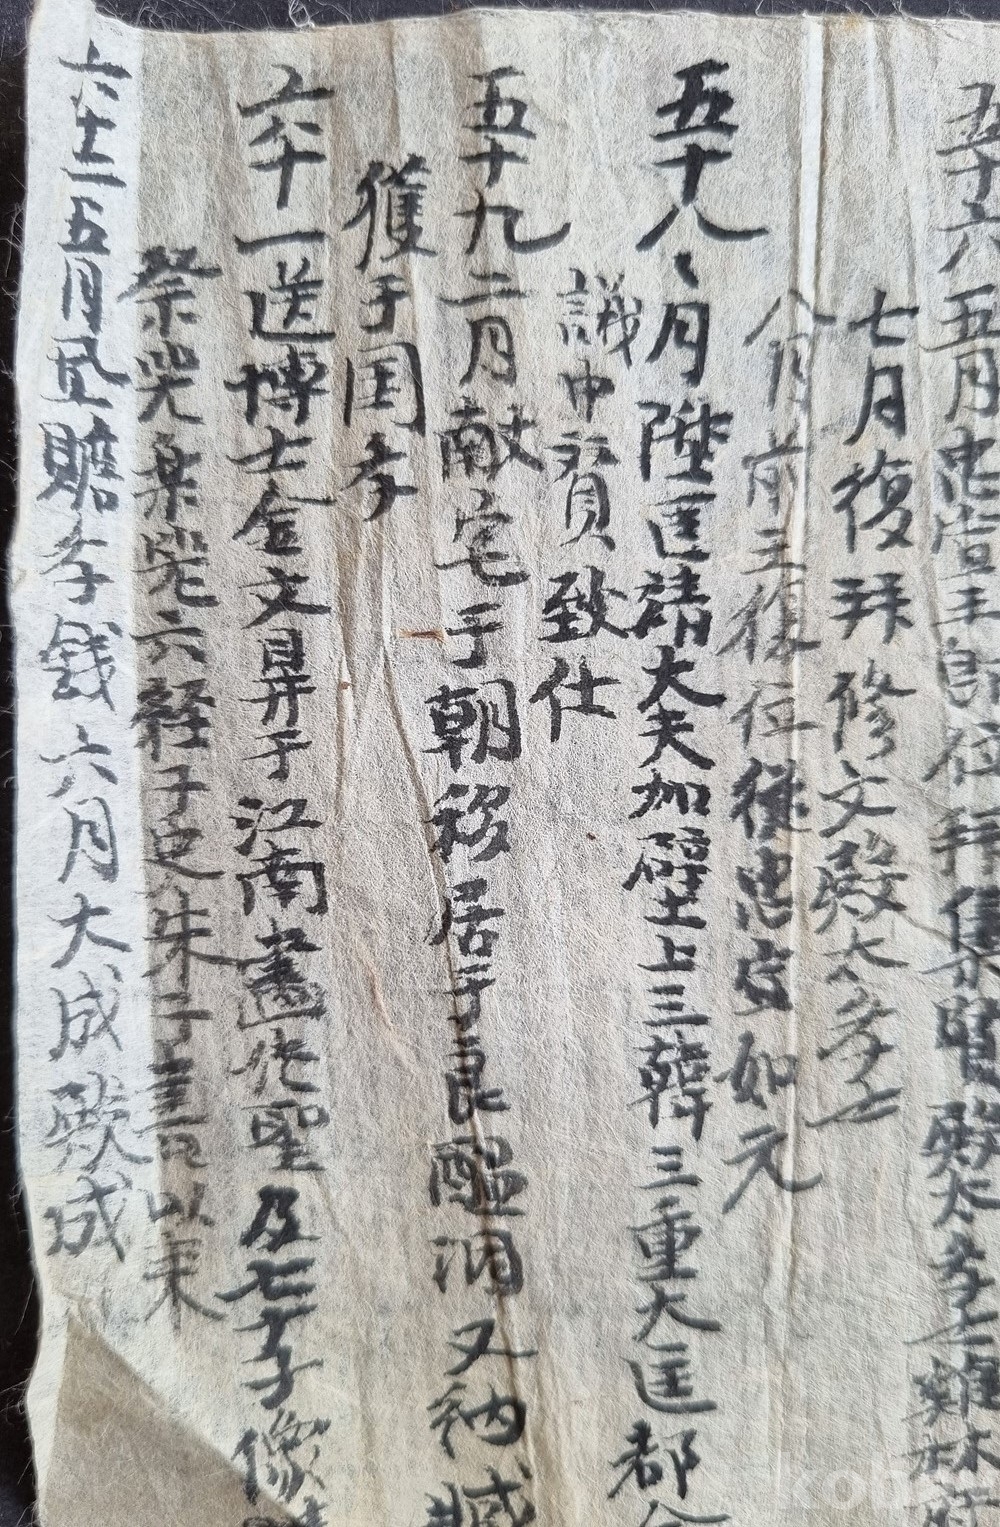 五十六五月忠宣王卽位拜集賢殿太季士雞林
七月復拜修文殿大季士
八月前王復位從忠宣如元
五十八八月陞匡靖大夫加壁上三韓三重大匡都
議中賛致仕
五十九二月献宅于朝移居于良醞洞又納臧
獲于国季
六十一送博士金文鼎于江南畵先聖及七十子像
祭器樂器六経子史朱子書以来
六十二五月置贍季錢六月大成殿成